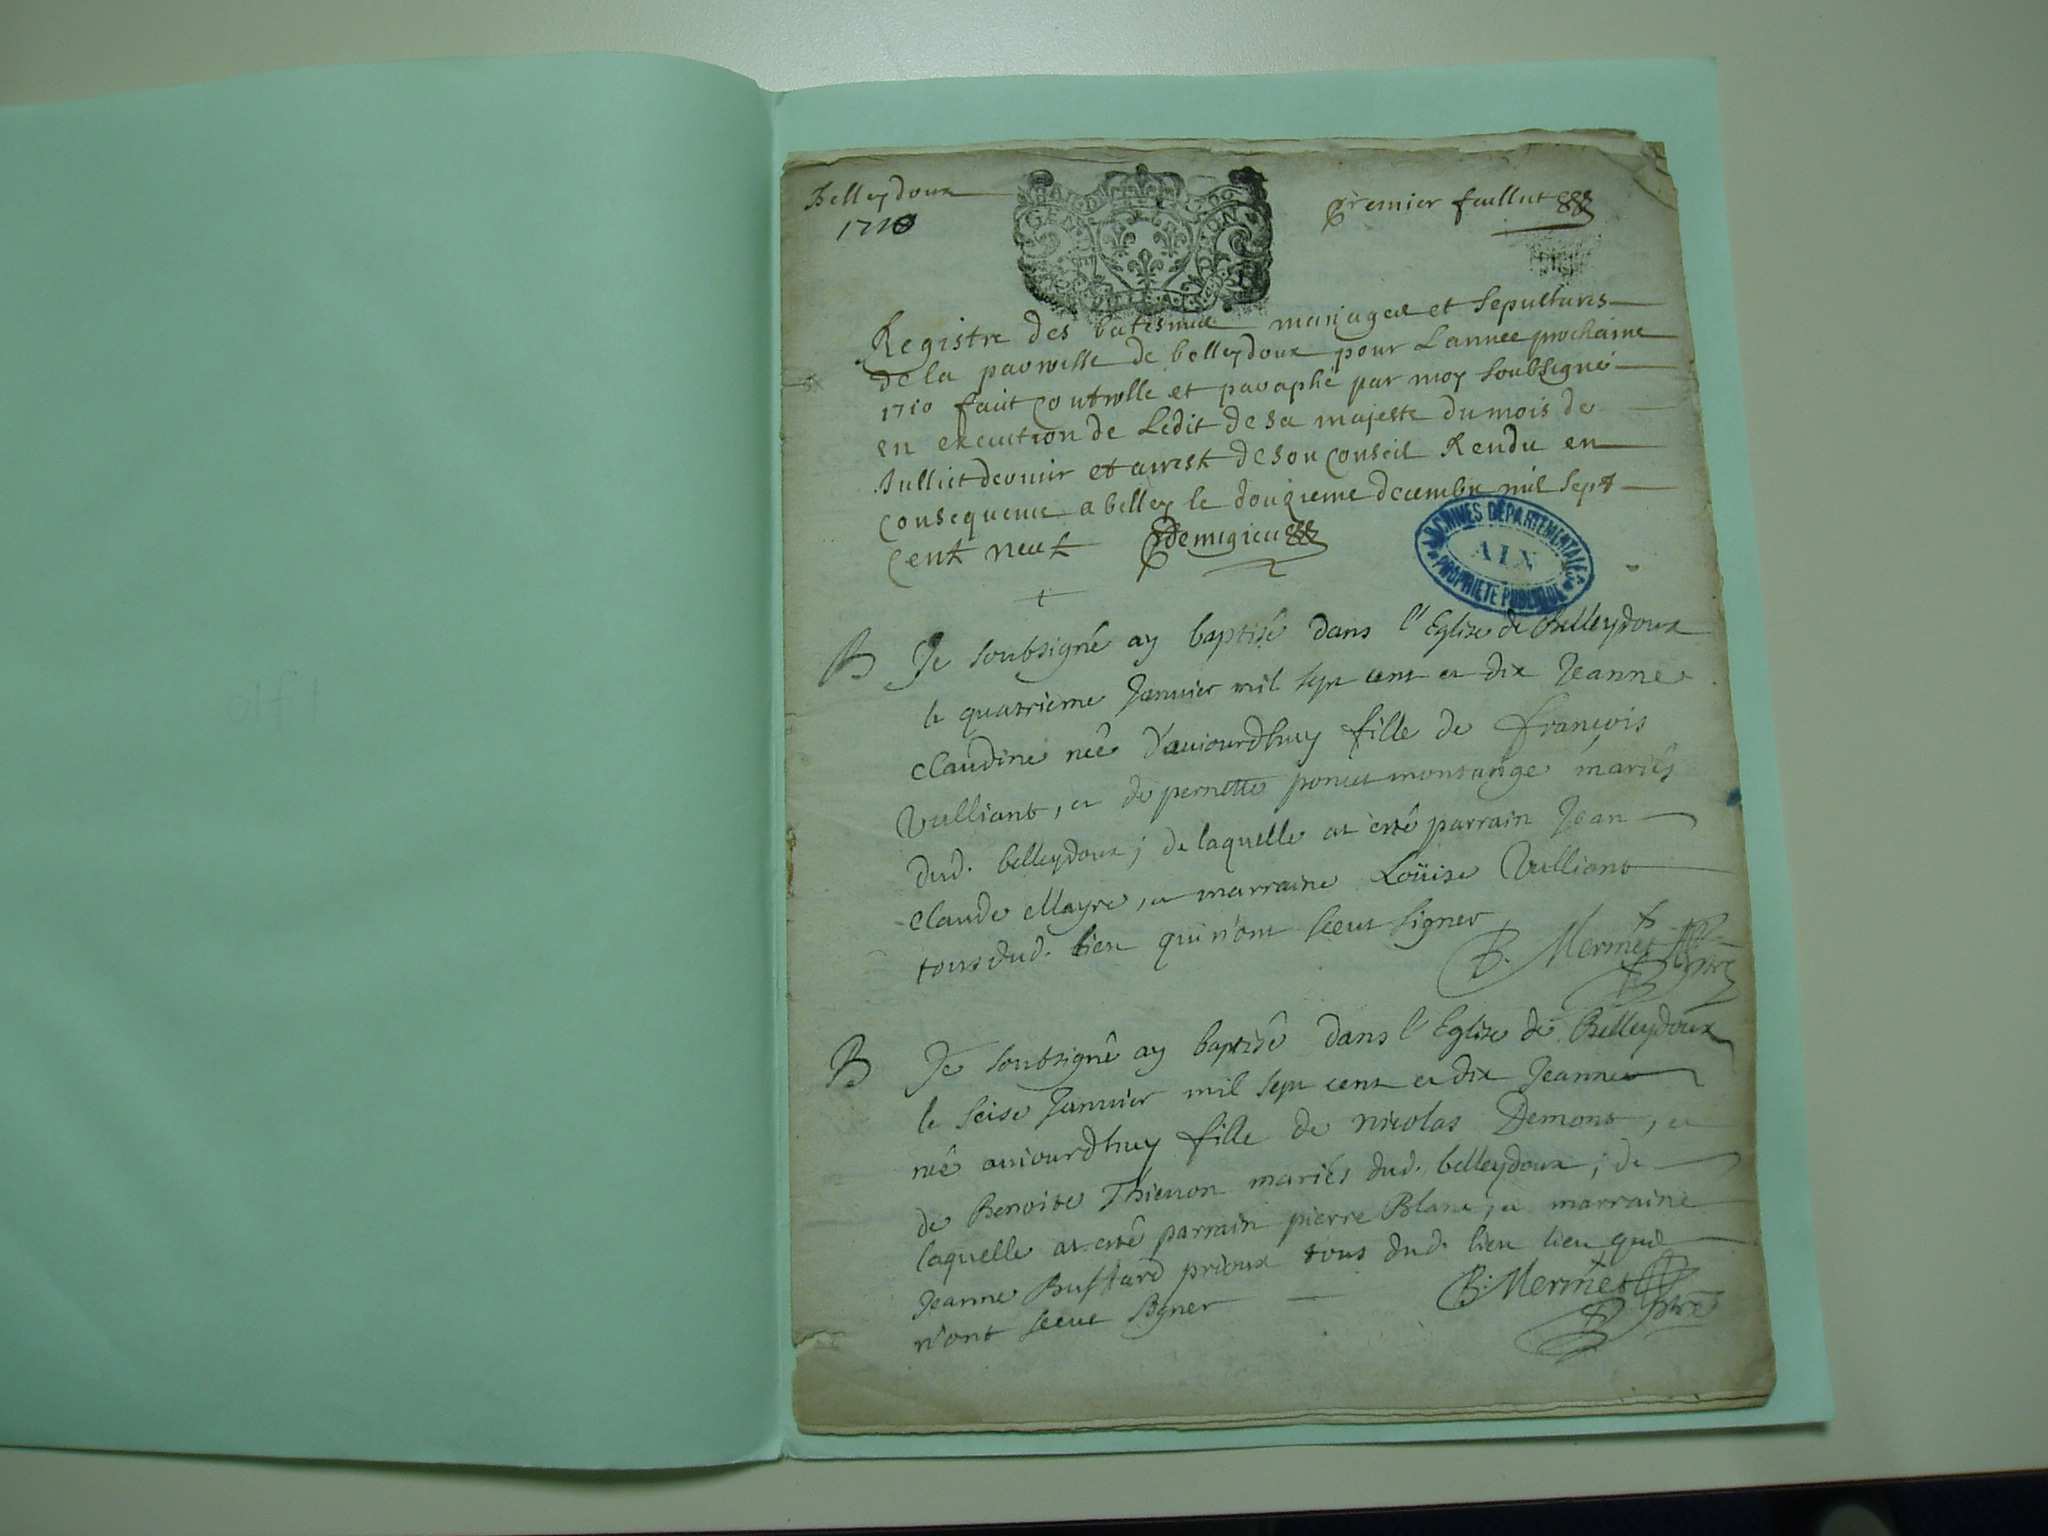 Belleydoux
1710
premier feulliet
GEN DIJON
Registre des batesmes mariages et sepultures
de la parroisse de belleydoux pour Lannee prochaine
1710 fait controlle et paraphé par moy soubsigné
en execution de Ledit de sa majesté du mois de
Julliet dernier et arrest de son Conseil Rendu en
consequence a belley le douzieme decembre mil sept
cent neuf Demigieu
ARCHIVES DÉPARTEMENTALES
AIN
PROPRIÉTÉ PUBLIQUE
B Je soubsigné ay baptisé dans l'Eglise de Belleydoux
le quatrieme Janvier mil sept cent et dix Jeanne
claudine née d'auiourdhuy fille de françois
Vulliant, et de pernette poncet montange mariés
dud. belleydoux; de laquelle at esté parrain Jean
claude Mayre, et marraine Loüise Vulliant
tous dud. lieu qui n'ont sceut signer
B. Mermet ptre
B Je soubsigné ay baptisé dans l'Eglise de Belleydoux
le seise Janvier mil sept cent et dix Jeanne
née auiourdhuy fille de nicolas Demont, et
de Benoite Thienon mariés dud. belleydoux; de
laquelle at esté parrain pierre Blanc, et marraine
Jeanne Buffard prioux tous dud. lieu lieu qui
n'ont sceut signer
B. Mermet ptre
1710